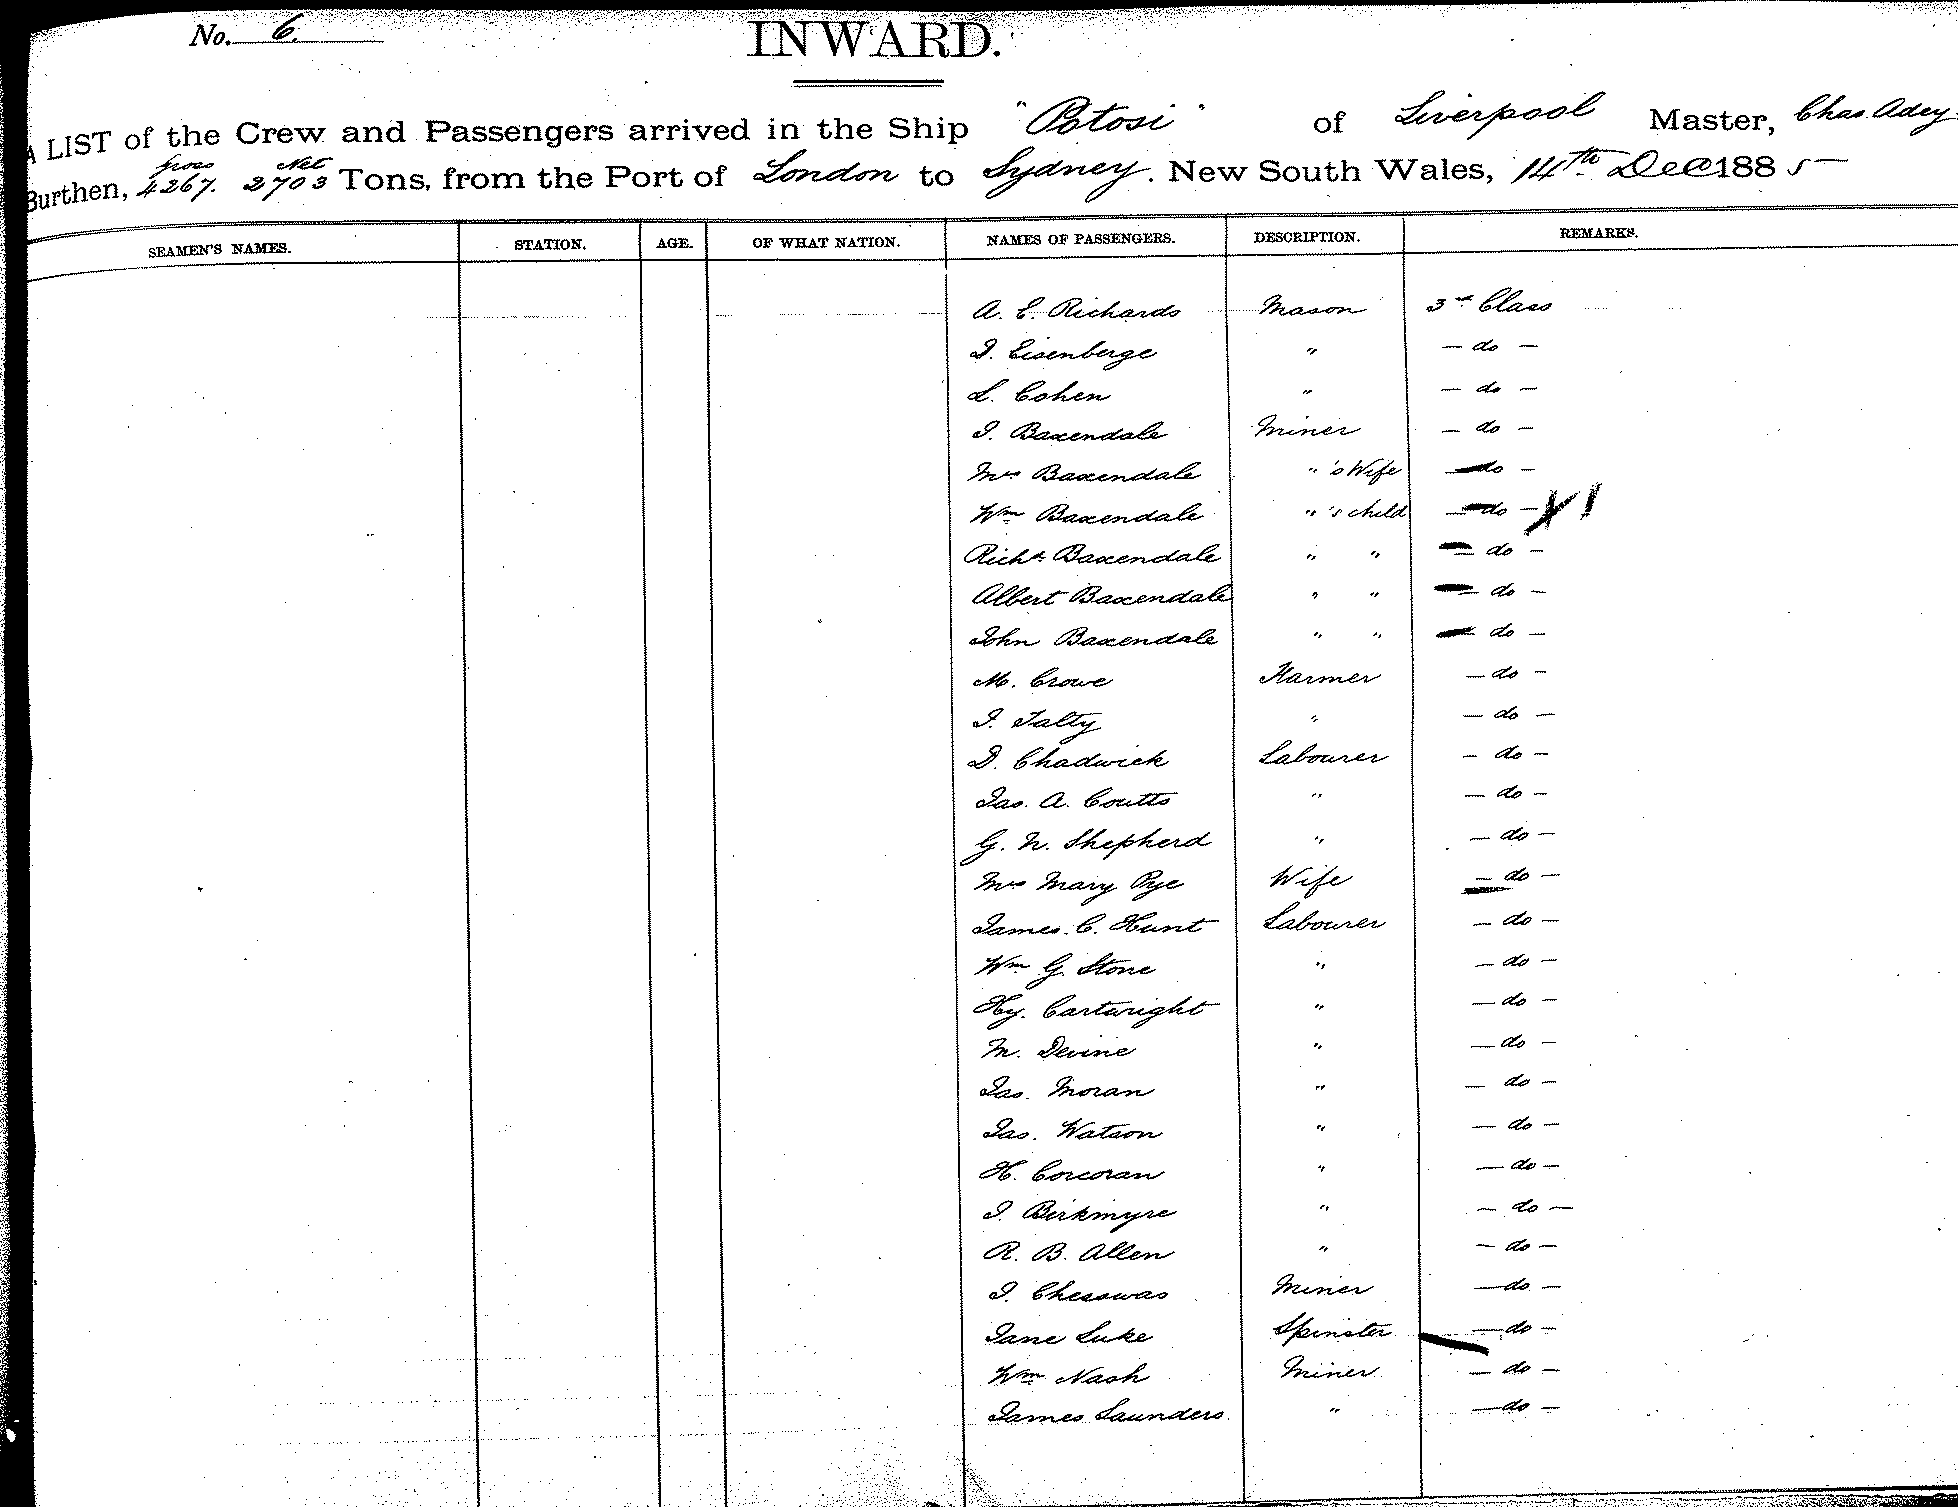 No. 6.
INWARD.
A LIST of the Crew and Passengers arrived in the Ship "Potosi" of Liverpool Master, Chas. Adey
Burthen, Gross 4267. Net 2703 Tons, from the Port of London to Sydney. New South Wales, 14th Dec 1885
SEAMEN'S NAMES. STATION. AGE. OF WHAT NATION. NAMES OF PASSENGERS. DESCRIPTION. REMARKS.
A. E. Richards Mason 3rd Class
I. Eisenberge " — do —
L. Cohen " — do —
J. Baxendale Miner — do —
Mrs Baxendale " 's Wife — do —
Wm Baxendale " 's child — do —
Richd. Baxendale " " — do —
Albert Baxendale " " — do —
John Baxendale " " — do —
M. Crowe Farmer — do —
J. Talty " — do —
D. Chadwick Labourer — do —
Jas. A. Coutts " — do —
G. N. Shepherd " — do —
Mrs Mary Pye Wife — do —
James C. Hunt Labourer — do —
Wm G. Stone " — do —
Hy. Cartwright " — do —
M. Devine " — do —
Jas. Moran " — do —
Jas. Watson " — do —
H. Corcoran " — do —
J. Birkmyre " — do —
R. B. Allen " — do —
J. Chesswas Miner — do —
Jane Luke Spinster — do —
Wm Nash Miner — do —
James Saunders " — do —